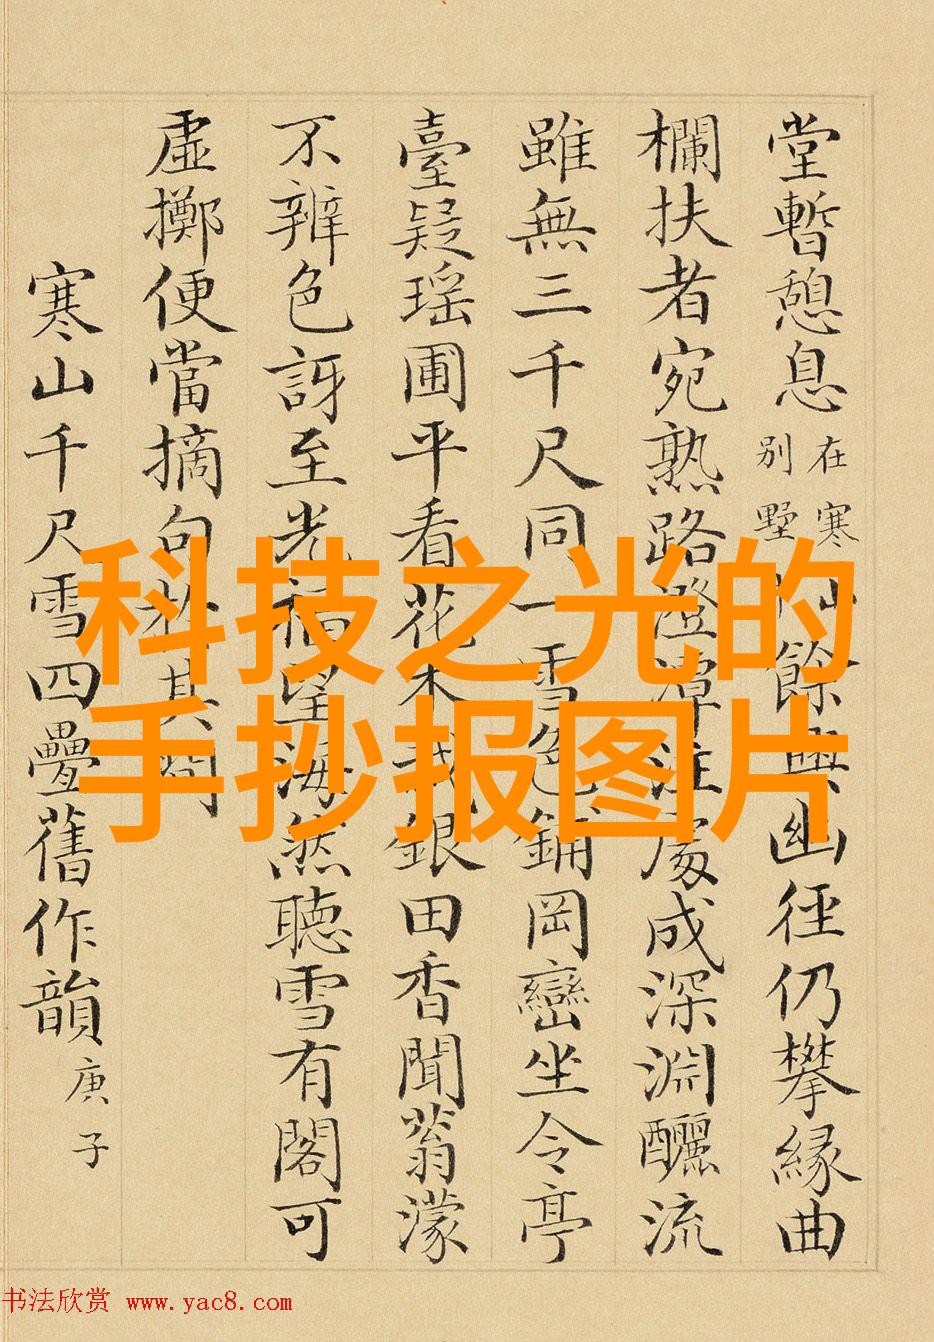 堂暫憩息在寒山別墅餘興幽徑仍攀緣曲
欄扶者宛熟路澄潭注處成深淵釃流
雖無三千尺同一雪色鋪岡巒坐令亭
臺疑瑶圃平看花木銀田香聞蓊濛
不辨色訝至光福望海然聽雪有閣可
虛擲便當摘句於其間
寒山千尺雪四疊舊作韻庚子
科技之光的
手抄报图片
书法欣赏 www.yac8.com